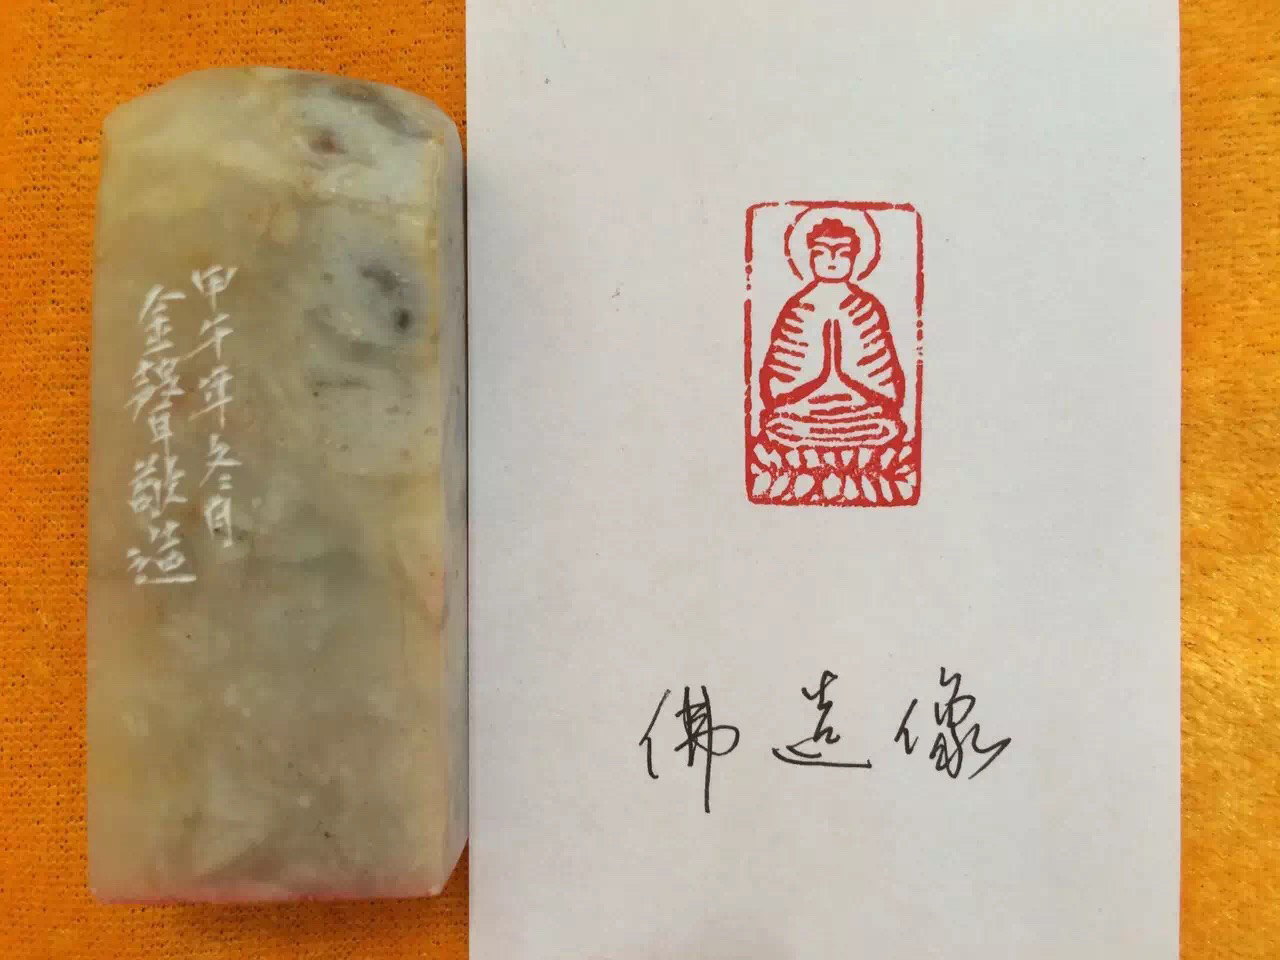 甲午年冬月
金聲敬造
佛造像